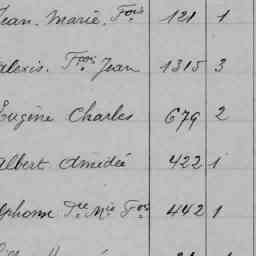 Jean. Marie. Fois 121 1
Alexis. Fois Jean 1315 3
Eugène Charles 679 2
Albert Amédée 422 1
Alphonse Mie Fois 442 1